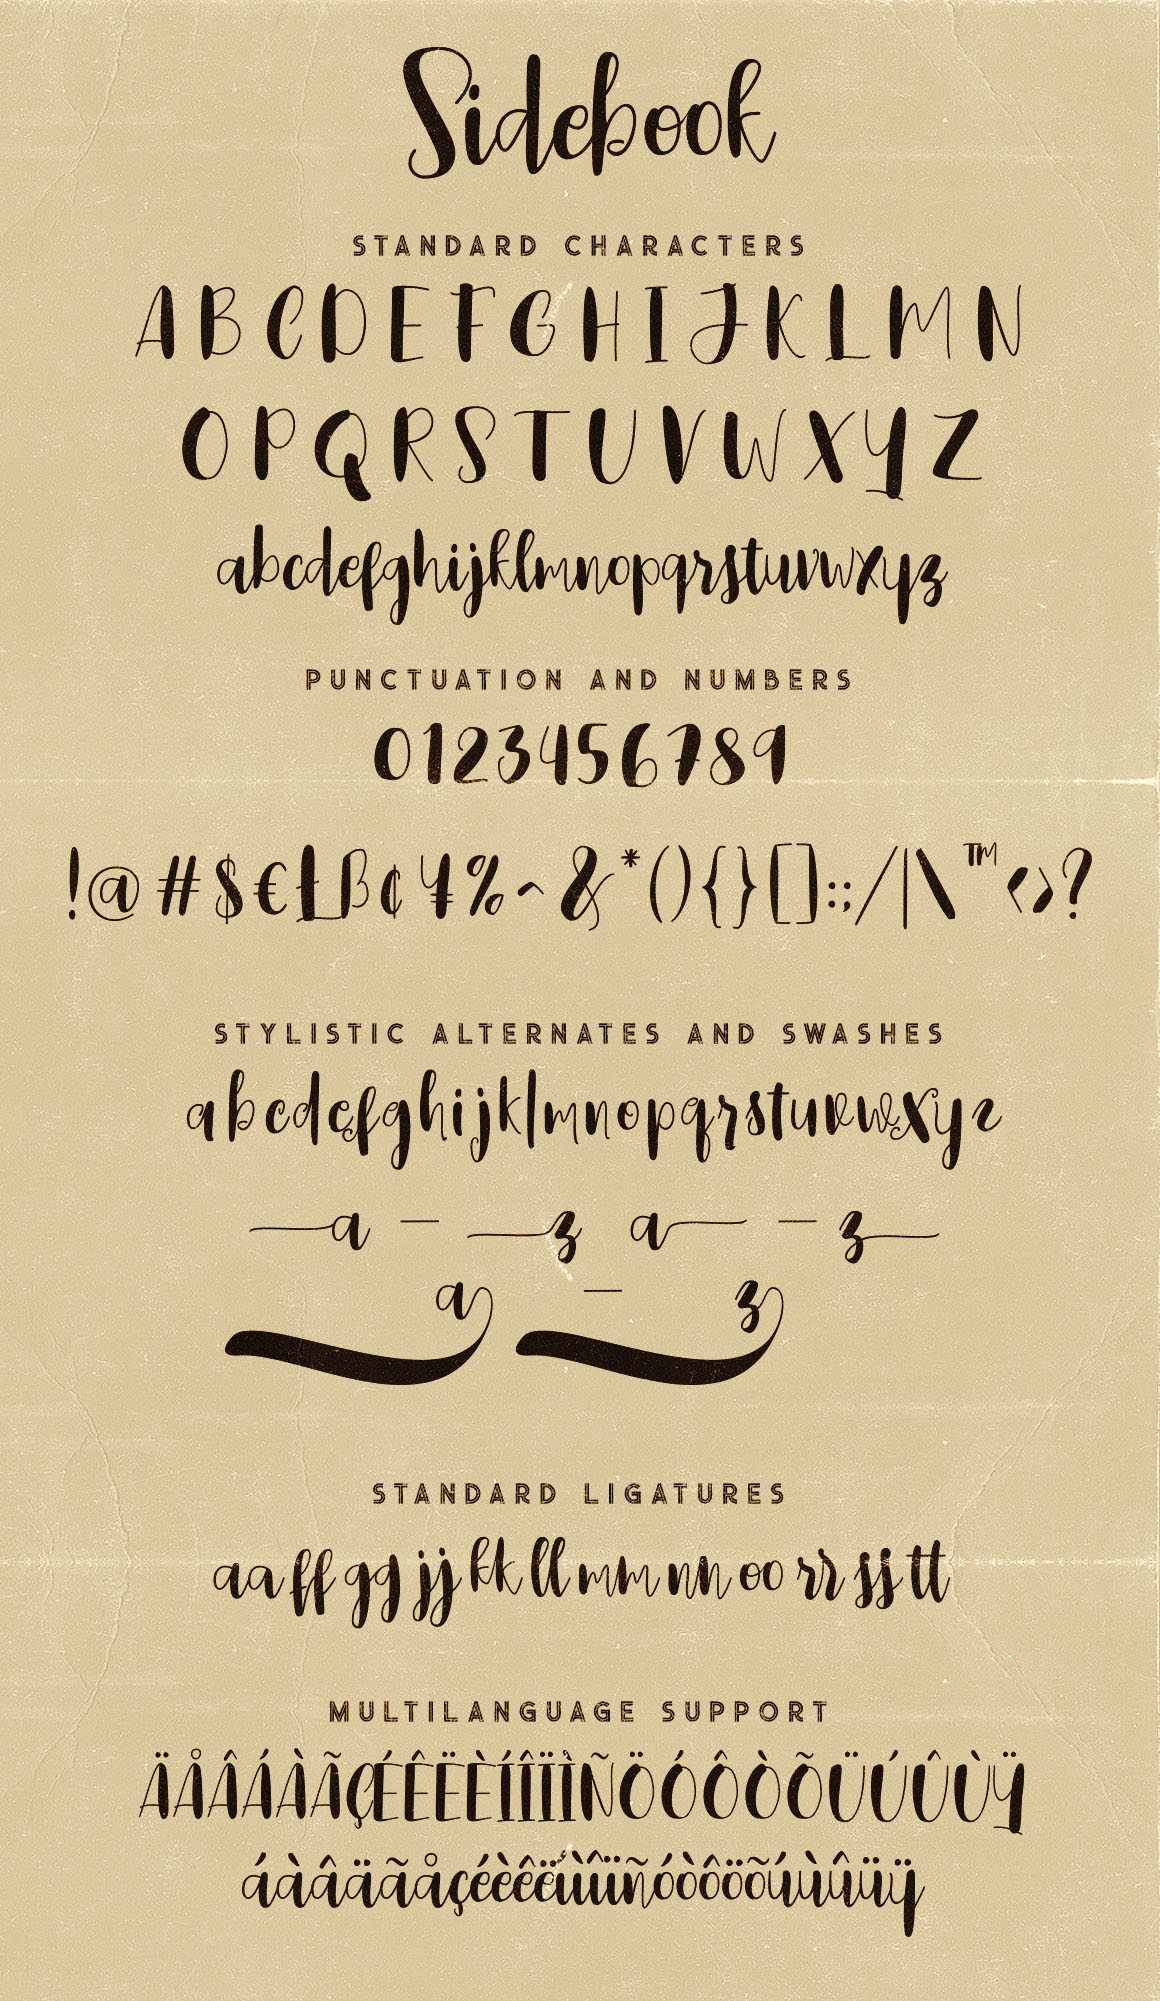 Sidebook
STANDARD CHARACTERS
A B C D E F G H I J K L M N
O P Q R S T U V W X Y Z
abcdefghijklmnopqrstuvwxyz
PUNCTUATION AND NUMBERS
0123456789
!@#$€Łß¢¥%^&*(){}[]:;/|\™<>?
STYLISTIC ALTERNATES AND SWASHES
abcdefghijklmnopqrstuvwxyz
a – z a – z
a – z
STANDARD LIGATURES
aa ff gg jj kk ll mm nn oo rr ss tt
MULTILANGUAGE SUPPORT
ÄÅÂÁÀÃÇÉÊËÈÍÎÏÌÑÖÓÔÒÕÜÚÛÙŸ
áàâäãåçéèêëíìîïñóòôöõúùûüÿ